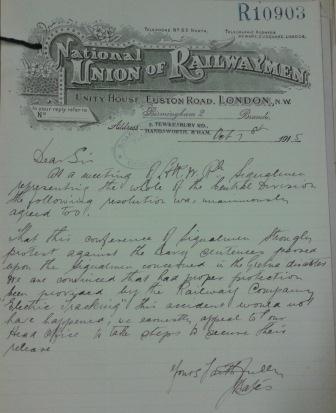 R10903
TELEPHONE Nº 55 NORTH.
TELEGRAPHIC ADDRESS
LONDON.
National
UNION OF RAILWAYMEN
UNITY HOUSE, EUSTON ROAD, LONDON, N.W.
In your reply refer to
Nº
Birmingham 2 Branch.
Address
2, TEWKESBURY RD.,
HANDSWORTH, B'HAM.
Oct 1915
Dear Sir
At a meeting of Signalmen
representing the whole of the Central Division
the following resolution was unanimously
agreed to:
That this conference of Signalmen strongly
protest against the savage sentences passed
upon the Signalmen concerned in the Gretna disaster
We are convinced that had proper protection
been provided by the Railway Company
"Electric Tracking" this accident would not
have happened, we earnestly appeal to our
Head Office to take steps to secure their
release
Yours faithfully
Bates